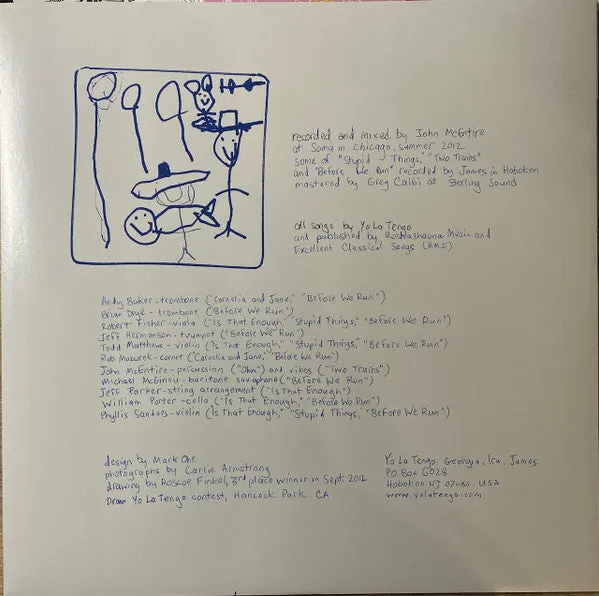 recorded and mixed by John McEntire
at Soma in Chicago, summer 2012
some of "Stupid Things," "Two Trains"
and "Before We Run" recorded by James in Hoboken
mastered by Greg Calbi at Sterling Sound
all songs by Yo La Tengo
and published by Roshashauna Music and
Excellent Classical Songs (BMI).
Andy Baker - trombone ("Cornelia and Jane," "Before We Run")
Brian Drye - trombone ("Before We Run")
Robert Fisher - viola ("Is That Enough," "Stupid Things," "Before We Run")
Jeff Hermanson - trumpet ("Before We Run")
Todd Matthews - violin ("Is That Enough," "Stupid Things," "Before We Run")
Rob Mazurek - cornet ("Cornelia and Jane," "Before We Run")
John McEntire - percussion ("Ohm") and vibes ("Two Trains")
Michael McGinnis - baritone saxophone ("Before We Run")
Jeff Parker - string arrangement ("Is That Enough")
William Porter - cello ("Is That Enough," "Before We Run")
Phyllis Sanders - violin ("Is That Enough," "Stupid Things," "Before We Run")
design by Mark Ohe
photographs by Carlie Armstrong
drawing by Roscoe Finkel, 3rd place winner in Sept. 2012
Draw Yo La Tengo contest, Hancock Park CA
Yo La Tengo: Georgia, Ira, James
PO Box 6028
Hoboken NJ 07030 USA
www.yolatengo.com